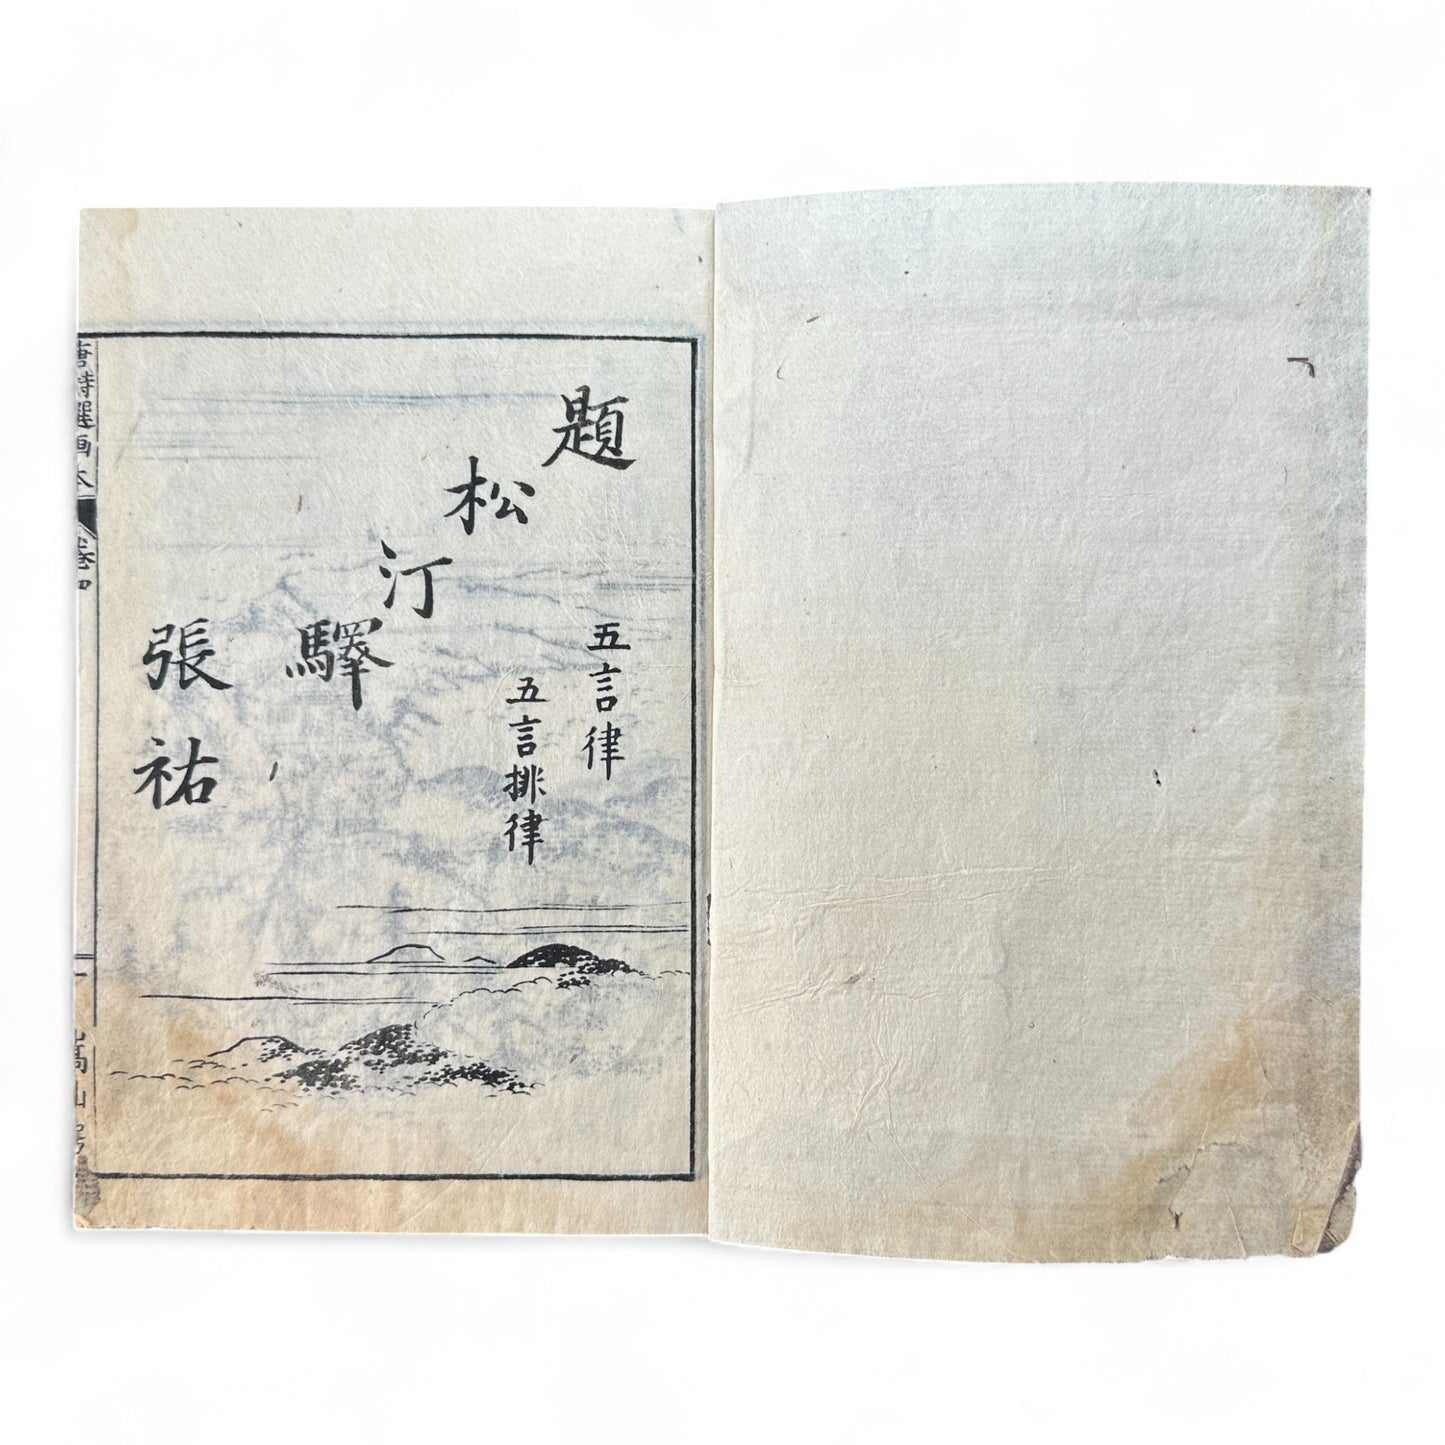 五言律
五言排律
題松汀驛
張祐
唐詩選画本
卷四
一
嵩山房